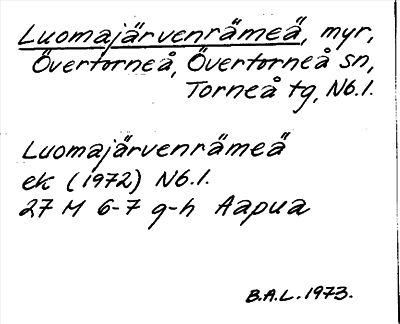 Luomajärvenrämeä, myr,
Övertorneå, Övertorneå sn,
Torneå tg, Nb.l.
Luomajärvenrämeä
ek (1972) Nb.l.
27 M 6-7 g-h Aapua
B.A.L. 1973.